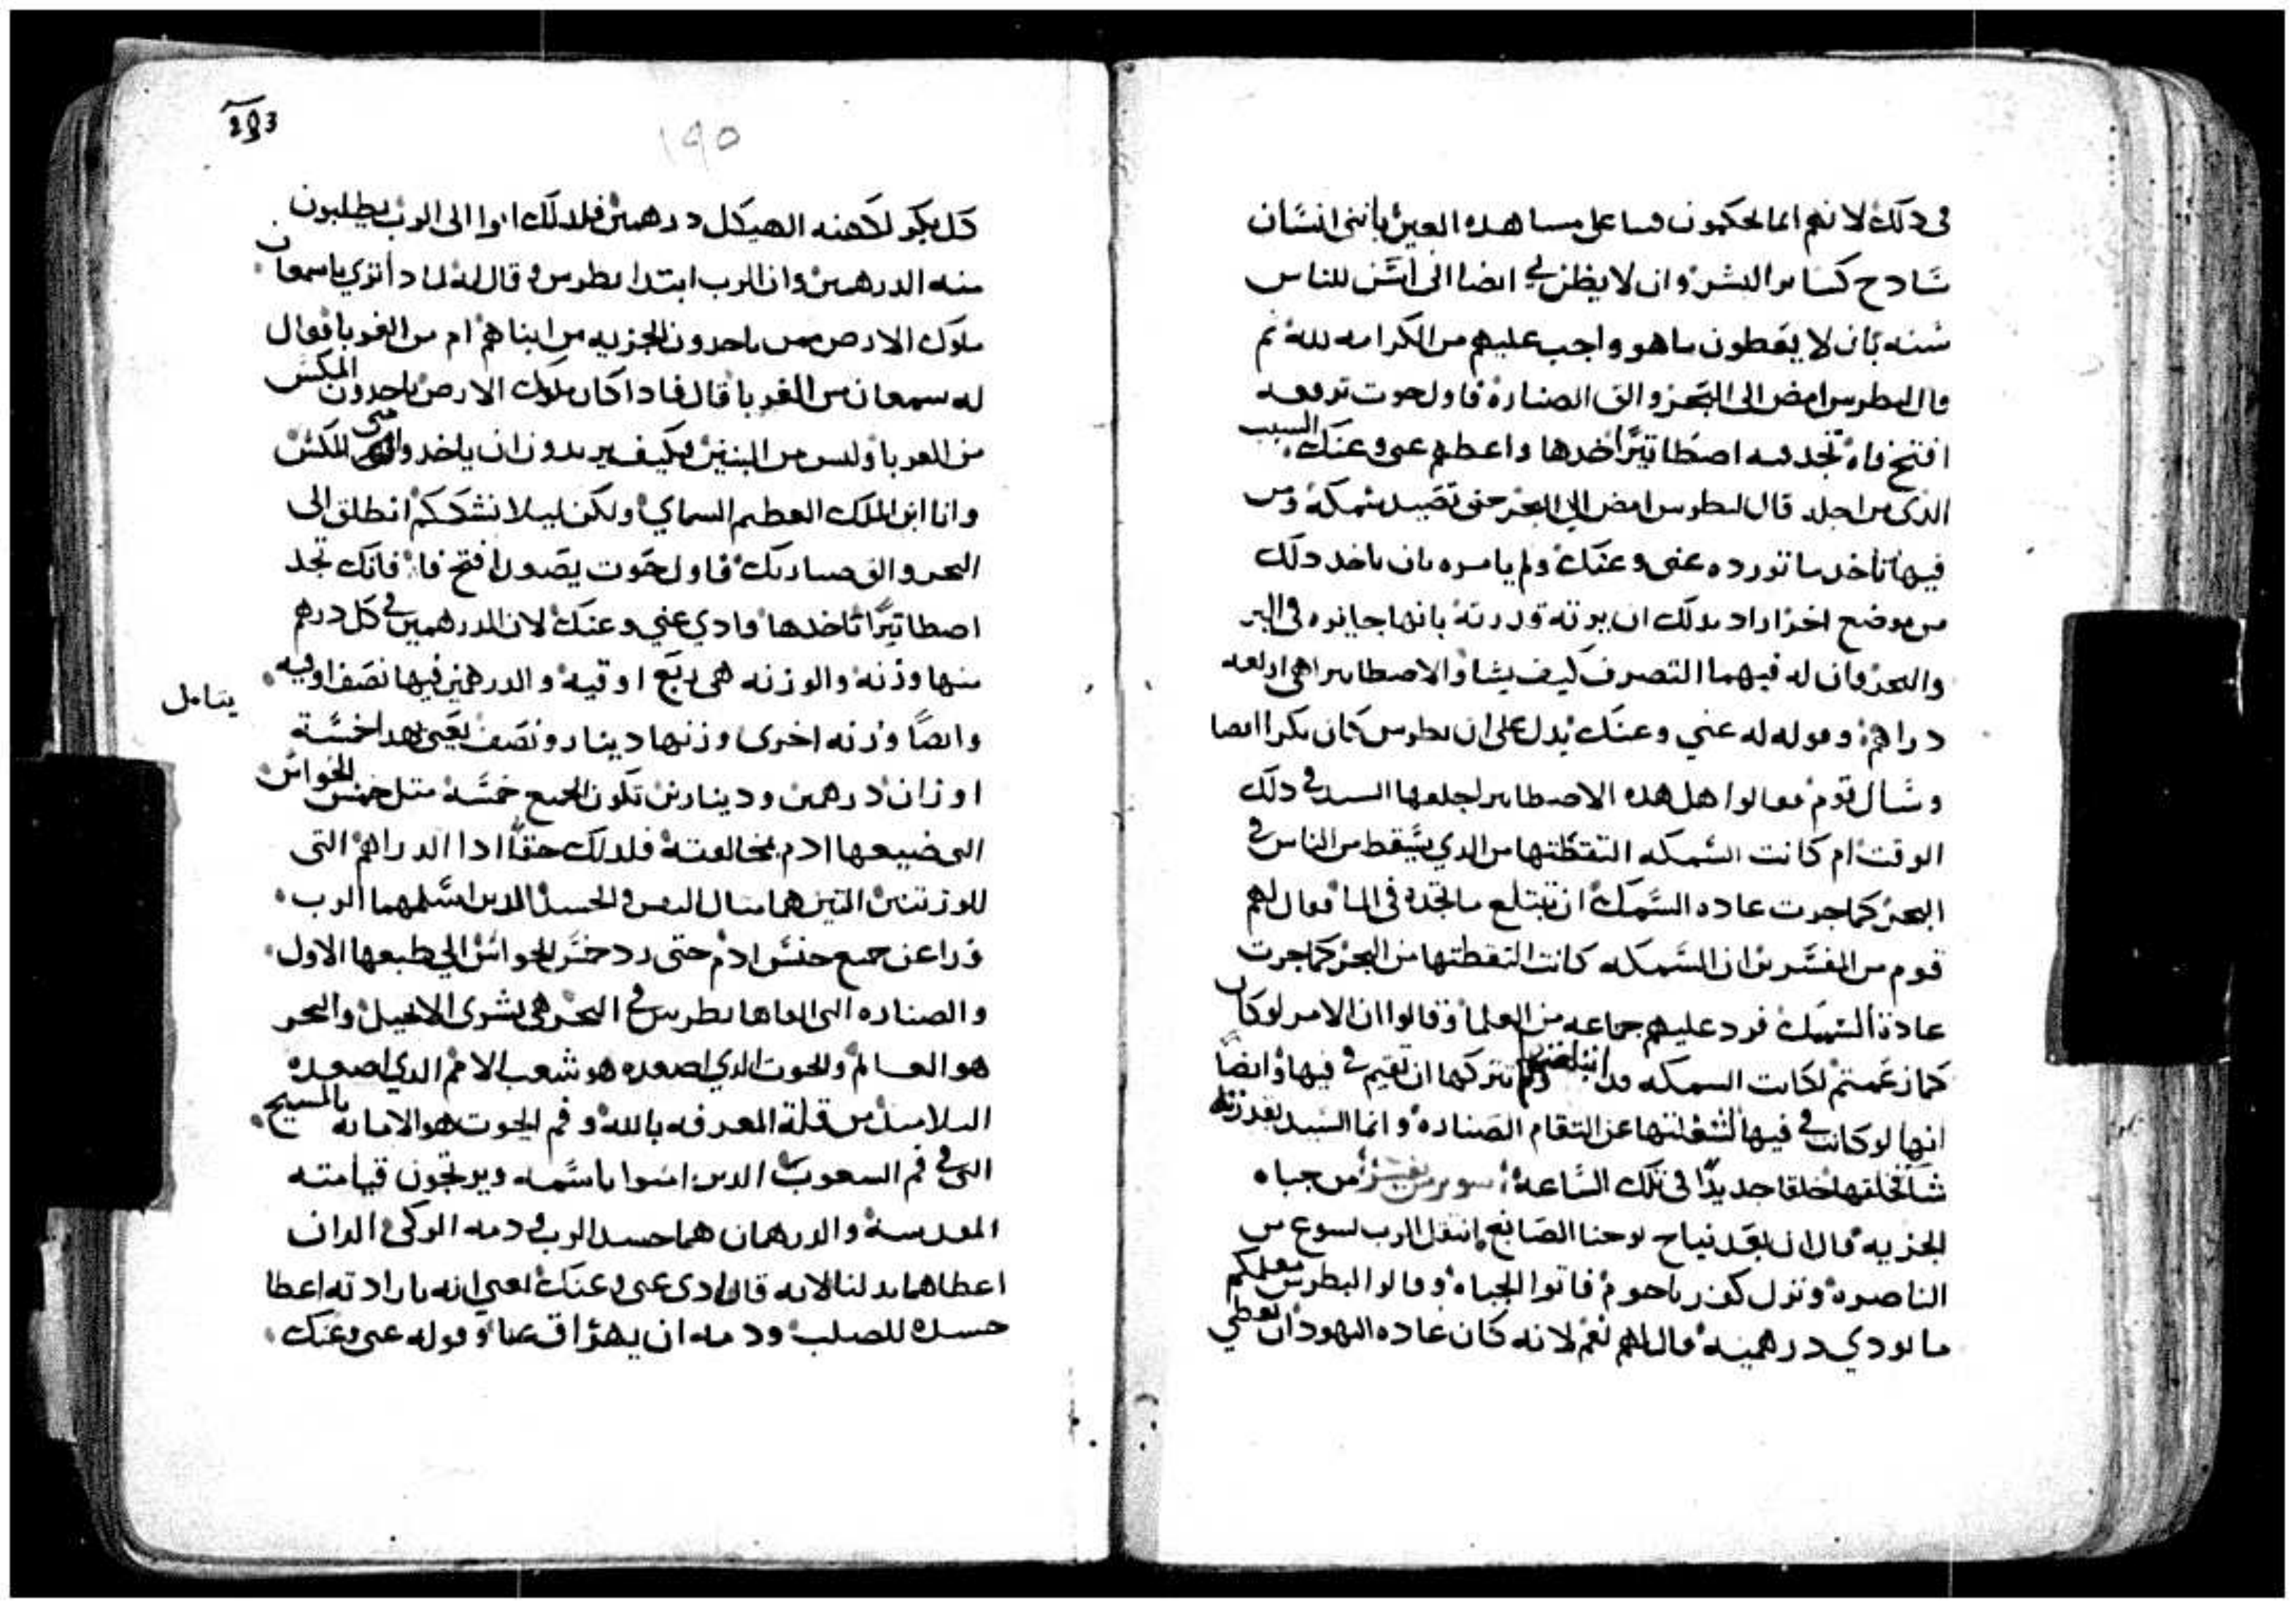 في دلك لانهم انما يحكمون فيما على مساهده العين بانني انسان
سادج كساير البشر وان لا يظن بي ايضا اني اسن للناس
سنه بان لا يعطون ما هو واجب عليهم من الكرامه لله ثم
قال لبطرس امض الى البحر والق الصناره فاول حوت ترفعه
افتح فاه تجد فيه اصطاتيرا خدها واعطهم عني وعنك السبب
الدي من اجله قال لبطرس امض الي البحر حتى تصيد سمكه ومن
فيها تاخد ما تورده عني وعنك ولم يامره بان ياخد دلك
من موضع اخر اراد بدلك ان يوته قدرته بانها جايزه في البر
والبحر وان له فيهما التصرف كيف يشا والاصطاتيرا هي اربعه
دراهم وقوله له عني وعنك يدل على ان بطرس كان بكرا ايضا
وسال قوم فقالوا هل هده الاصطاتيرا خلقها السيد في دلك
الوقت ام كانت السمكه التقطتها من الدي يسقط من الناس في
البحر كما جرت عاده السمك ان تبتلع ما تجده في الما فقال لهم
قوم من المفسرين ان السمكه كانت التقطتها من البحر كما جرت
عادة السمك فرد عليهم جماعه من العلما وقالوا ان الامر لو كان
كما زعمتم لكانت السمكه قد ابتلعتها ولم تتركها ان تقيم في فيها وايضا
انها لو كانت في فيها لشغلتها عن التقام الصناره وانما السيد بقدرته
شا فخلقها خلقا جديدا في تلك الساعه من جباه
الجزيه قال ان بعد نياح يوحنا الصابغ انتقل الرب يسوع من
الناصره ونزل كفرناحوم فاتوا الجباه وقالوا لبطرس معلمكم
ما يودي درهمينه قال لهم نعم لانه كان عاده اليهود ان يعطي
293
١٩٥
كل بكر لكهنه الهيكل درهمين فلدلك اتوا الى الرب يطلبون
منه الدرهمين وان الرب ابتدا بطرس وقال له مادا تري يا سمعان
ملوك الارض ممن ياخدون الجزيه من ابناهم ام من الغربا فقال
له سمعان من الغربا قال فادا كان ملوك الارض ياخدون المكس
من الغربا وليس من البنين فكيف يريدون ان ياخدوا مني المكس
وانا ابن الملك العظيم السماي ولكن ليلا نشككم انطلق الى
البحر والق صنارتك فاول حوت يصعد افتح فاه فانك تجد
اصطاتيرا تاخدها وادي عني وعنك لان الدرهمين في كل درهم
منها وزنه والوزنه هي ربع اوقيه والدرهمين فيها نصف اوقيه
وايضا وزنه اخرى وزنها دينار ونصف يعني بهدا خمسة
يتامل
اوزان درهمين ودينارين تكون الجميع خمسه مثل خمس الحواس
التي ضيعها ادم بمخالفته فلدلك حقا ادا الدراهم التي
للوزنتين التين هما مثال النفس والجسد الدين اسلمهما الرب
فدا عن جميع جنس ادم حتى رد خمس الحواس الي طبعها الاول
والصناره التي القاها بطرس في البحر هي بشرى الانجيل والبحر
هو العالم والحوت الدي اصعده هو شعب الامم الدي اصعده
التلاميد من قلة المعرفه بالله وفم الحوت هو الامانه بالمسيح
التي في فم الشعوب الدين امنوا باسمه ويرتجون قيامته
المقدسه والدرهمان هما جسد الرب ودمه الزكي الدان
اعطاهما بدلنا لانه قال ادي عني وعنك يعني انه بارادته اعطا
جسده للصلب ودمه ان يهراق عنا وقوله عني وعنك